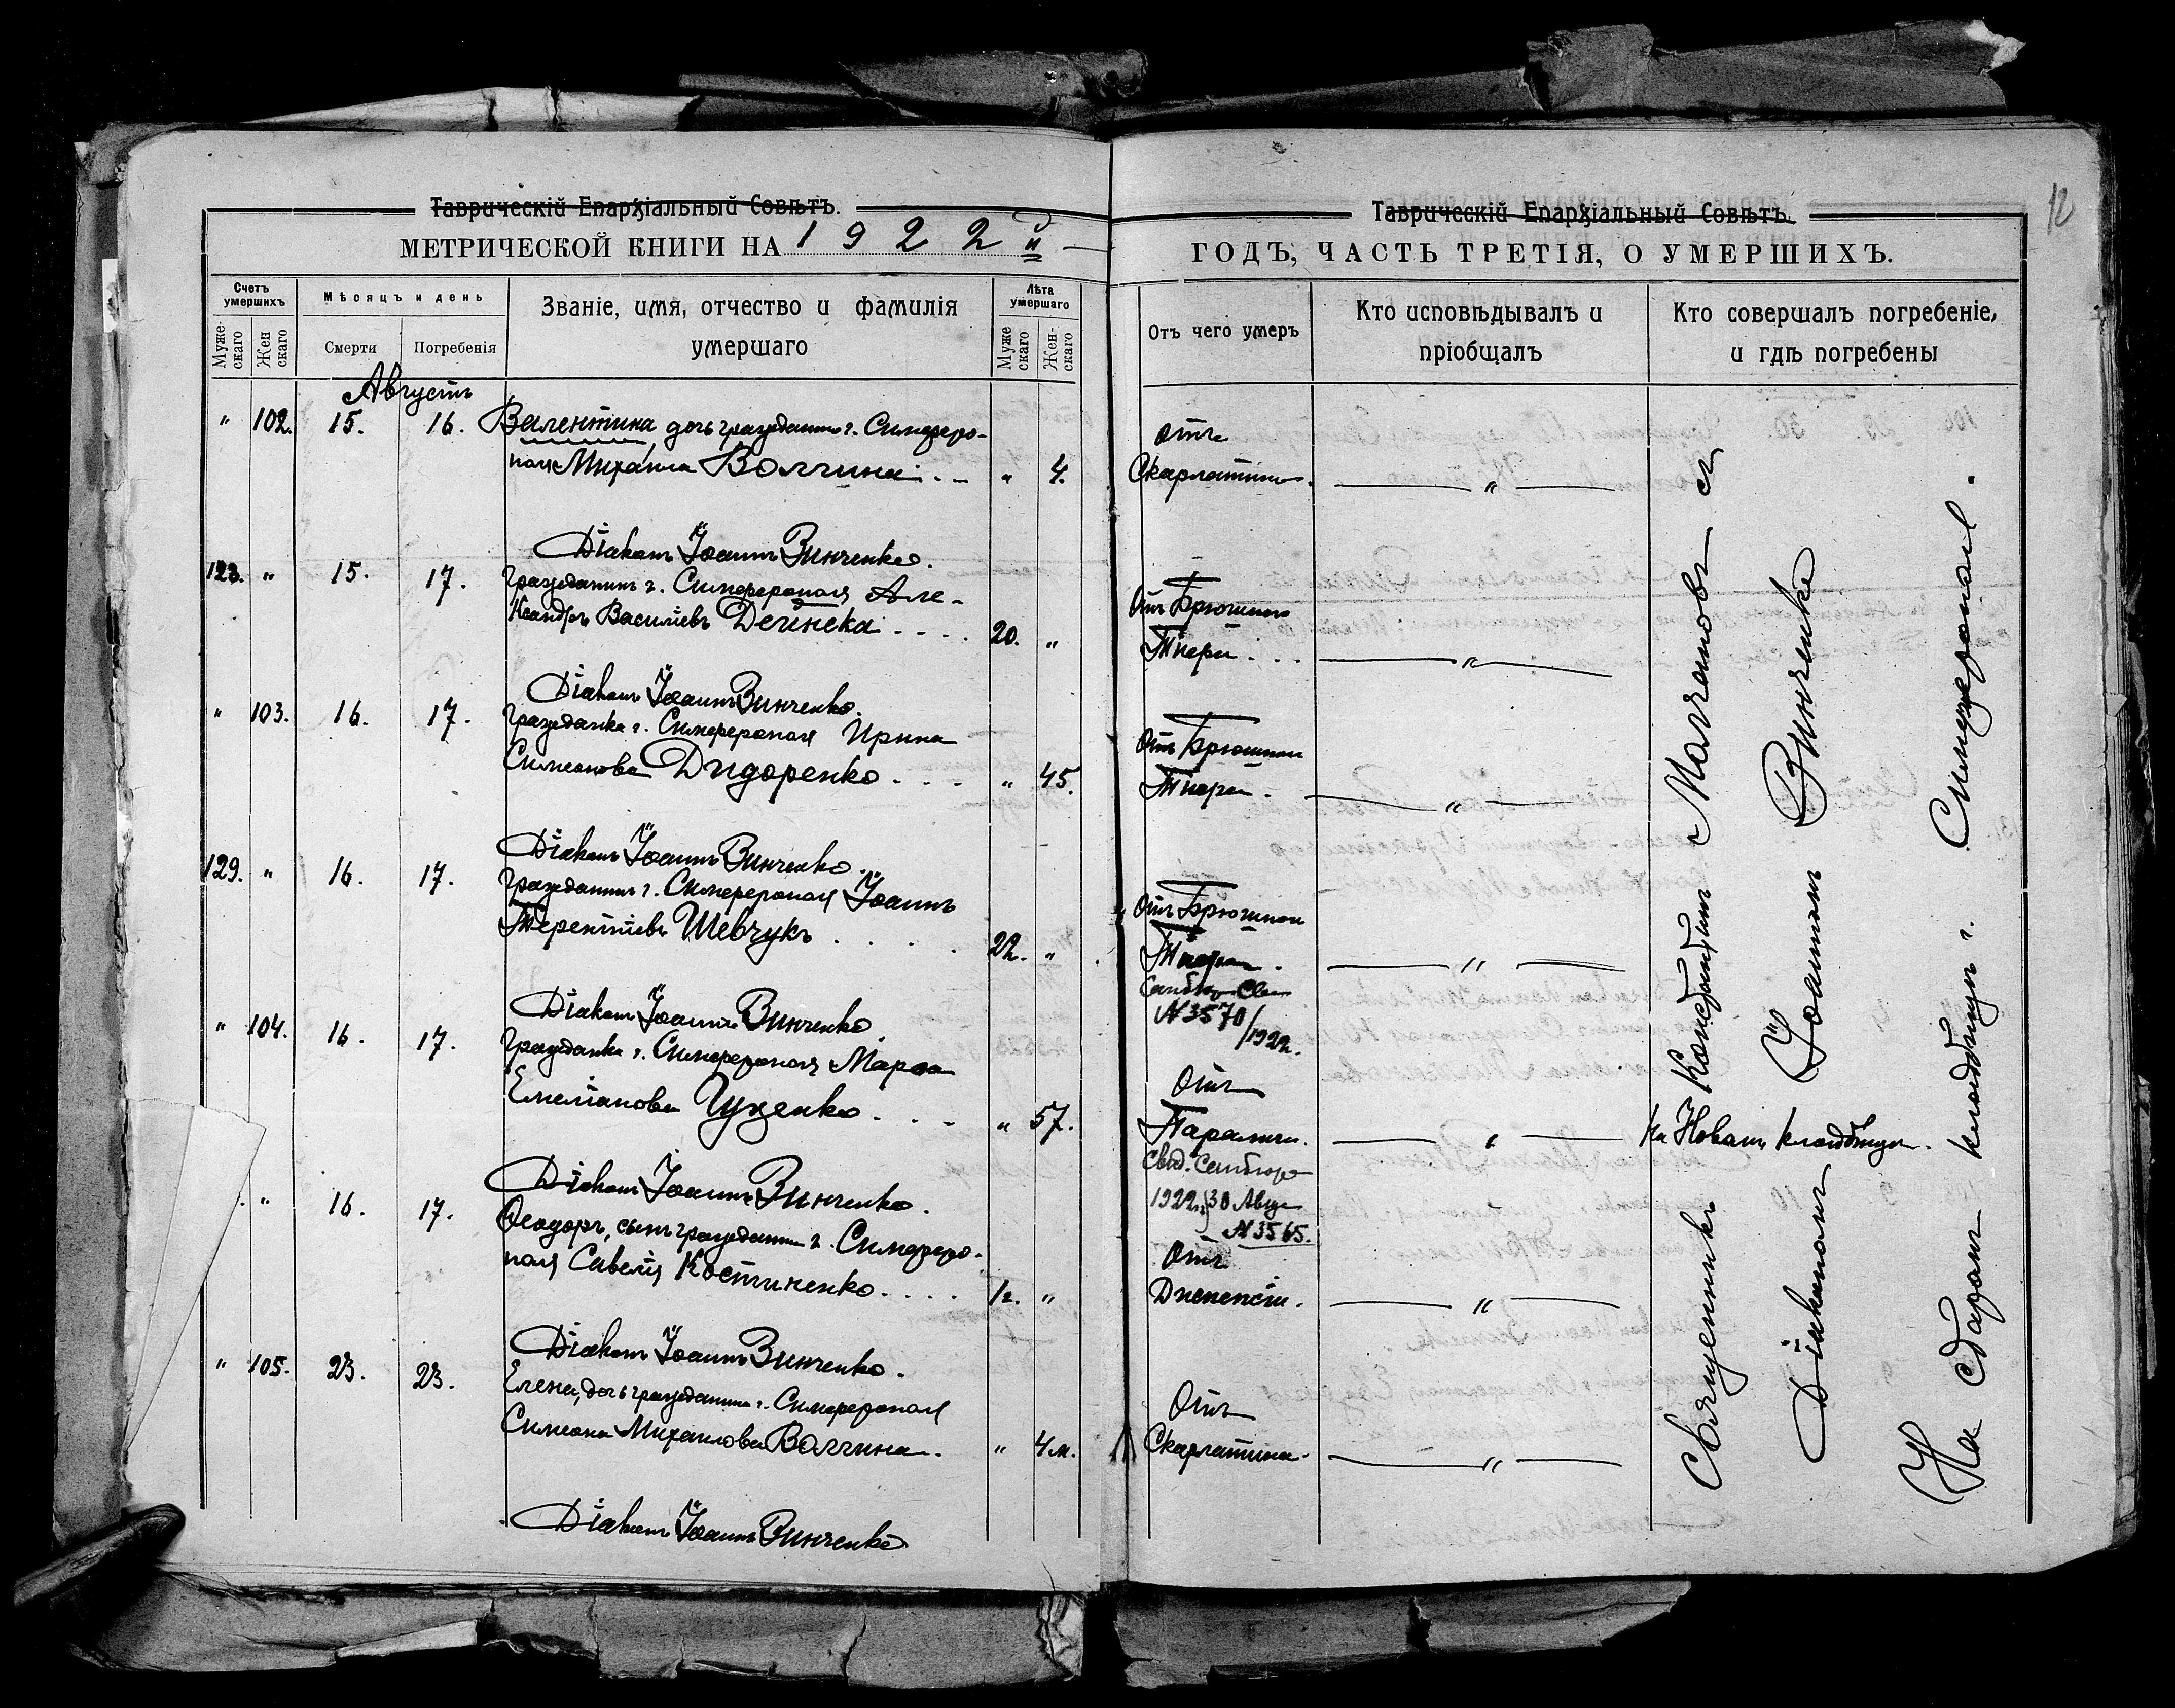 Таврическій Епархіальный Совѣтъ.
МЕТРИЧЕСКОЙ КНИГИ НА 1922й
Счетъ умершихъ
Мужескаго
Женскаго
Мѣсяцъ и день
Смерти
Погребенія
Званіе, имя, отчество и фамилія
умершаго
Лѣта умершаго
Мужескаго
Женскаго
Августъ
" 102. 15. 16. Валентина, дочь гражданина г. Симферо-
поля Михаила Волгина " 4.
Діаконъ Іоаннъ Винченко.
128. " 15. 17. Гражданинъ г. Симферополя Але-
ксандръ Василіевъ Дейнека 20. "
Діаконъ Іоаннъ Винченко.
" 103. 16. 17. Гражданка г. Симферополя Ирина
Симеонова Дидоренко " 45.
Діаконъ Іоаннъ Винченко.
129. " 16. 17. Гражданинъ г. Симферополя Іоаннъ
Терентіевъ Шевчукъ 22. "
Діаконъ Іоаннъ Винченко.
" 104. 16. 17. Гражданка г. Симферополя Марѳа
Емеліанова Гуценко " 57.
Діаконъ Іоаннъ Винченко.
" 16. 17. Ѳеодоръ, сынъ гражданина г. Симферо-
поля Савелія Костиненко 1г. "
Діаконъ Іоаннъ Винченко.
" 105. 23. 23. Елена, дочь гражданина г. Симферополя
Симеона Михайлова Волгина. " 4м.
Діаконъ Іоаннъ Винченко
12
Таврическій Епархіальный Совѣтъ.
ГОДЪ, ЧАСТЬ ТРЕТІЯ, О УМЕРШИХЪ.
Отъ чего умеръ
Кто исповѣдывалъ и
пріобщалъ
Кто совершалъ погребеніе,
и гдѣ погребены
отъ
Скарлатины. "
Отъ Брюшного
Тифа "
Отъ Брюшного
Тифа. "
Отъ Брюшного
Тифа. "
№ 3570/1922.
Отъ
Паралича. "
На Новомъ кладбищѣ.
1922г. 30 Авгу
№ 3565.
Отъ
Диспепсіи. "
Отъ
Скарлатины. "
Священникъ Константинъ Молчановъ съ
Діакономъ Іоанномъ Винченко
На старомъ кладбищѣ г. Симферополя.